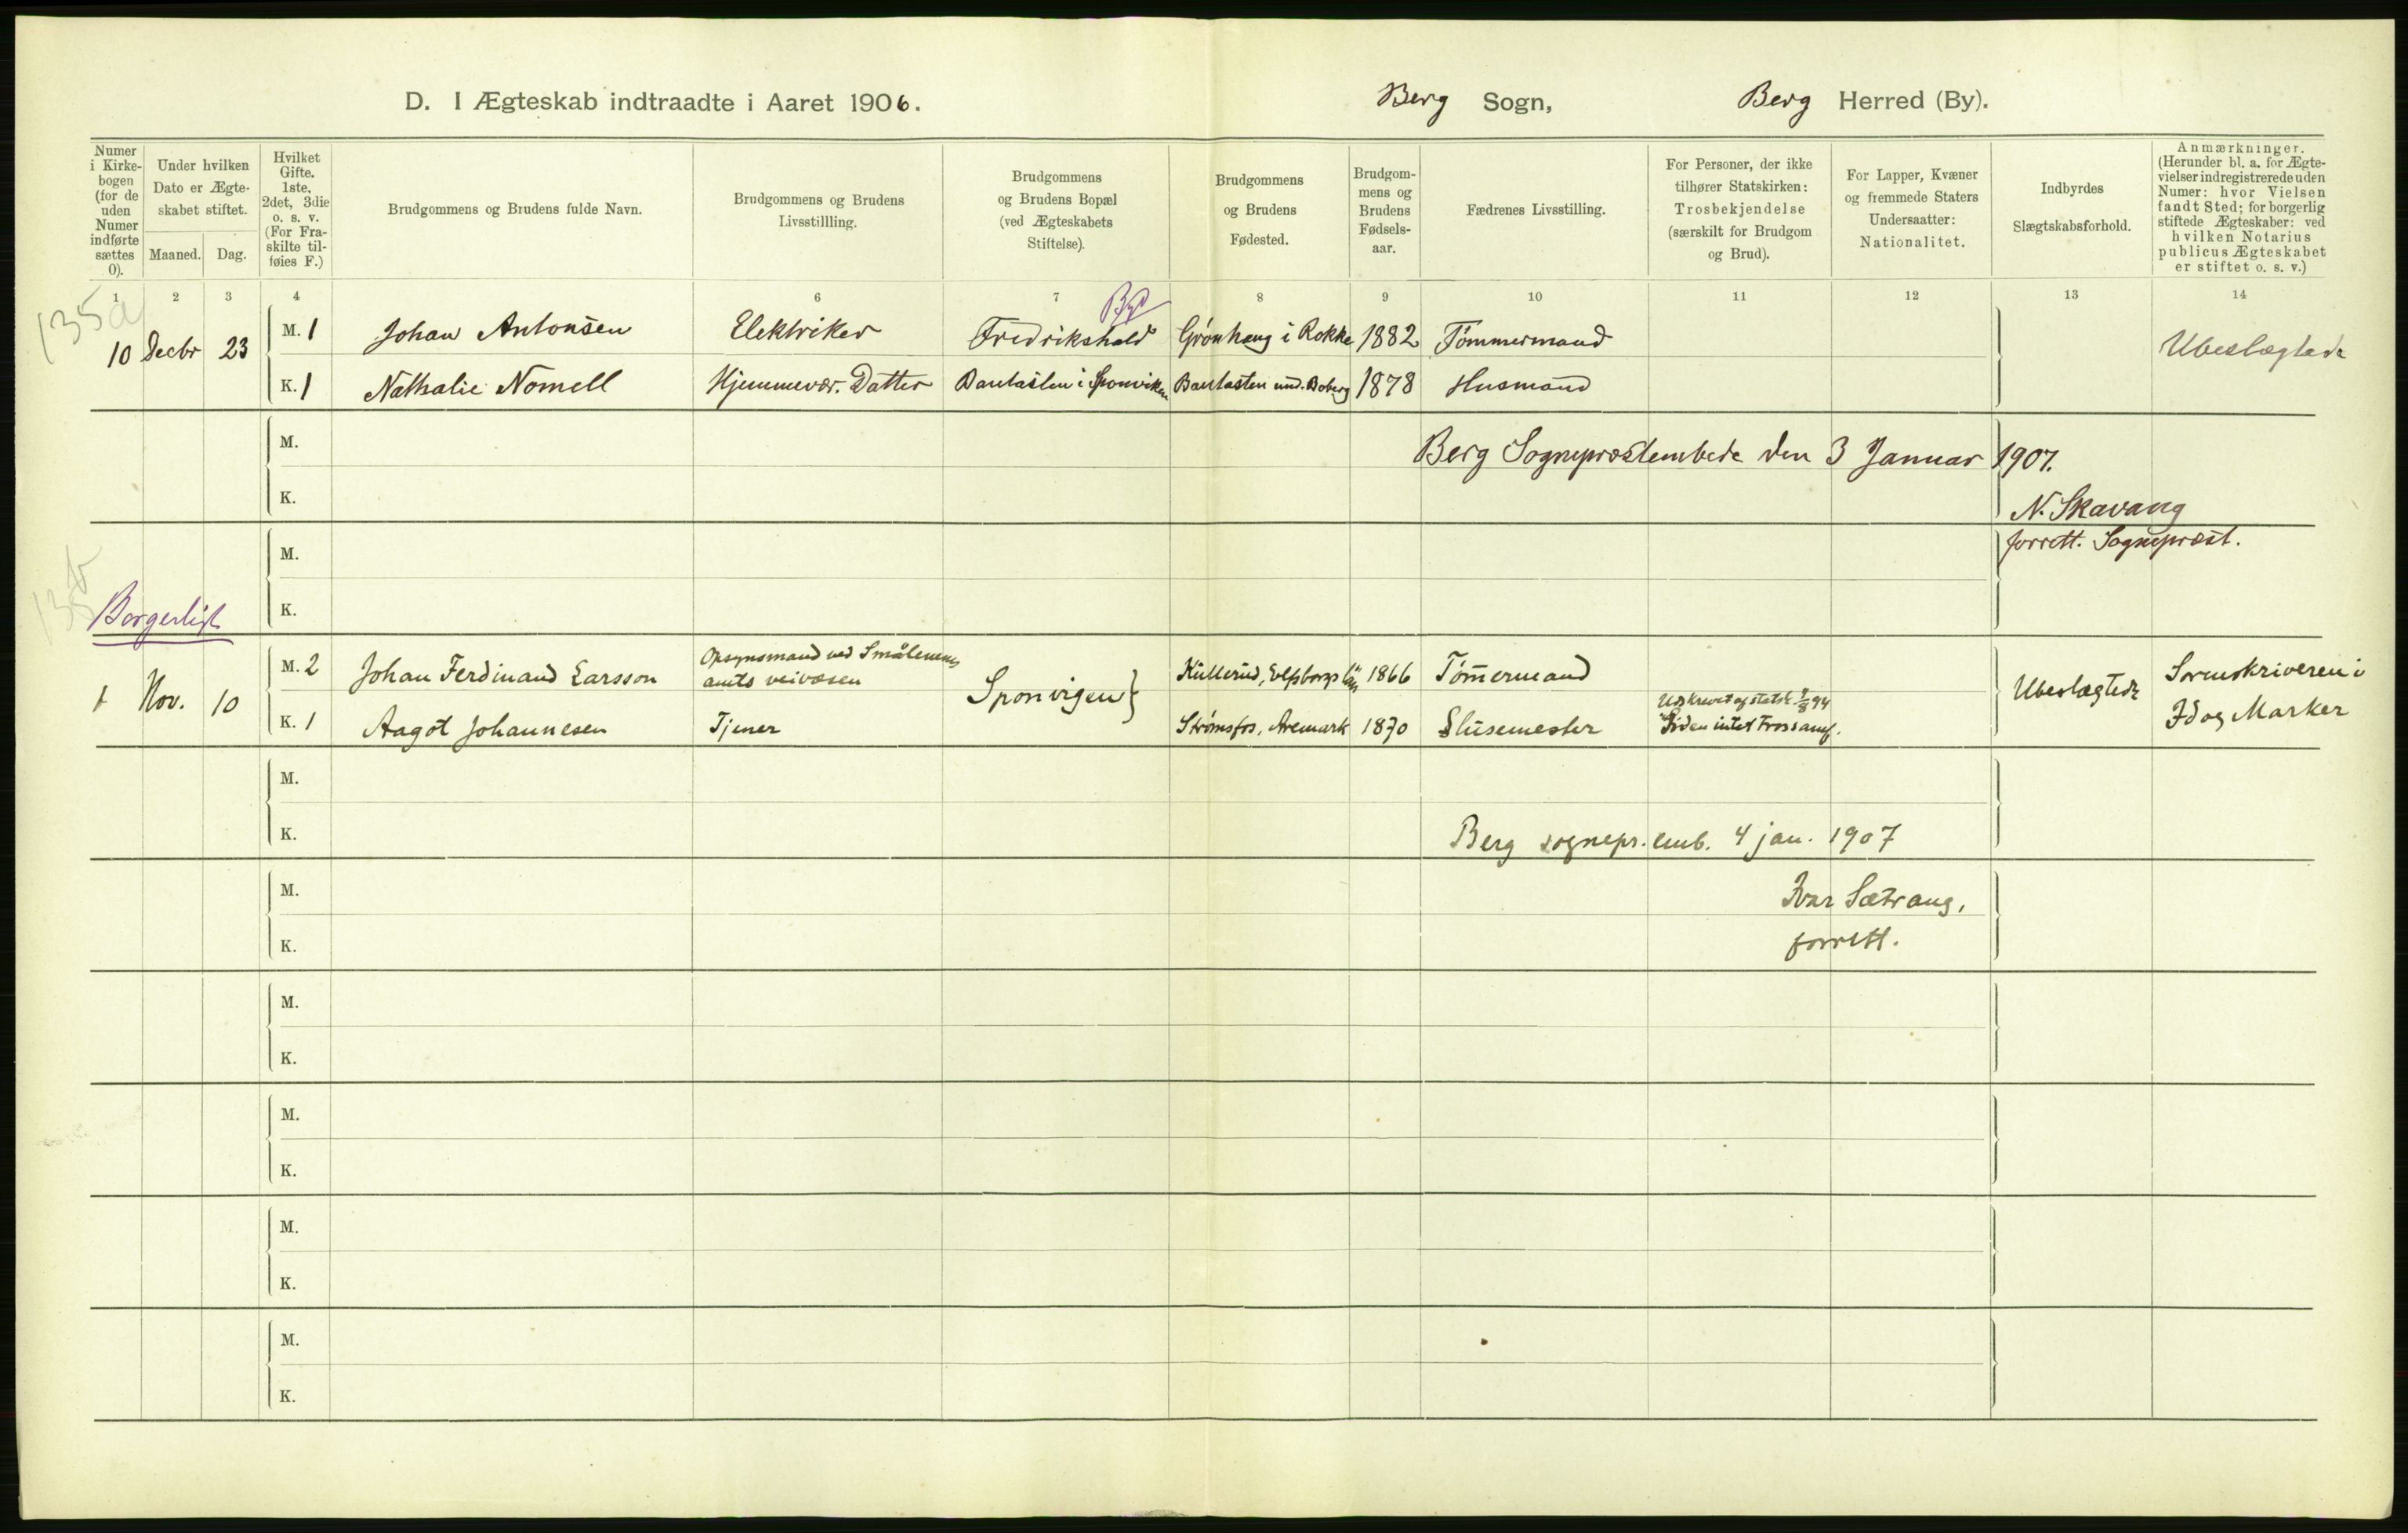 D. I Ægteskab indtraadte i Aaret 1906. Berg Sogn, Berg Herred (By).
Numer i Kirkebogen (for de uden Numer indførte sættes 0).
Under hvilken Dato er Ægteskabet stiftet.
Maaned. Dag.
Hvilket Gifte. 1ste, 2det, 3die o. s. v. (For Fraskilte tilføies F.)
Brudgommens og Brudens fulde Navn.
Brudgommens og Brudens Livsstillling.
Brudgommens og Brudens Bopæl (ved Ægteskabets Stiftelse).
Brudgommens og Brudens Fødested.
Brudgommens og Brudens Fødselsaar.
Fædrenes Livsstilling.
For Personer, der ikke tilhører Statskirken: Trosbekjendelse (særskilt for Brudgom og Brud).
For Lapper, Kvæner og fremmede Staters Undersaatter: Nationalitet.
Indbyrdes Slægtskabsforhold.
Anmærkninger. (Herunder bl. a. for Ægtevielser indregistrerede uden Numer: hvor Vielsen fandt Sted; for borgerlig stiftede Ægteskaber: ved hvilken Notarius publicus Ægteskabet er stiftet o. s. v.)
1 2 3 4 6 7 8 9 10 11 12 13 14
135a
By
10 Decbr 23 M. 1 Johan Antonsen Elektriker Fredrikshald Grønhaug i Rokke 1882 Tömmermand Ubeslægtede
K. 1 Nathalie Nomell Hjemmevær. Datter Bautasten i Sponviken Bautasten und. Boberg 1878 Husmand
M. Berg Sogneprestembede den 3 Januar 1907.
K. N. Skavang
M. forrett. Sogneprest.
135b
Borgerligt K.
1 Nov. 10 M. 2 Johan Ferdinand Larsson Opsynsmand ved Smålenenes amts veivæsen Sponvigen} Kullerud, Elfsborgs län 1866 Tömermand Ubeslægtede Sorenskriveren i Id og Marker
K. 1 Aagot Johannesen Tjener Strømsfos, Aremark 1870 Slusemester Udskrevet af statsk. 9/8 94 Siden intet Trossamf.
M.
K. Berg sognepr. emb. 4 jan. 1907
M. Ivar Sætrang,
K. forrett.
M.
K.
M.
K.
M.
K.
M.
K.